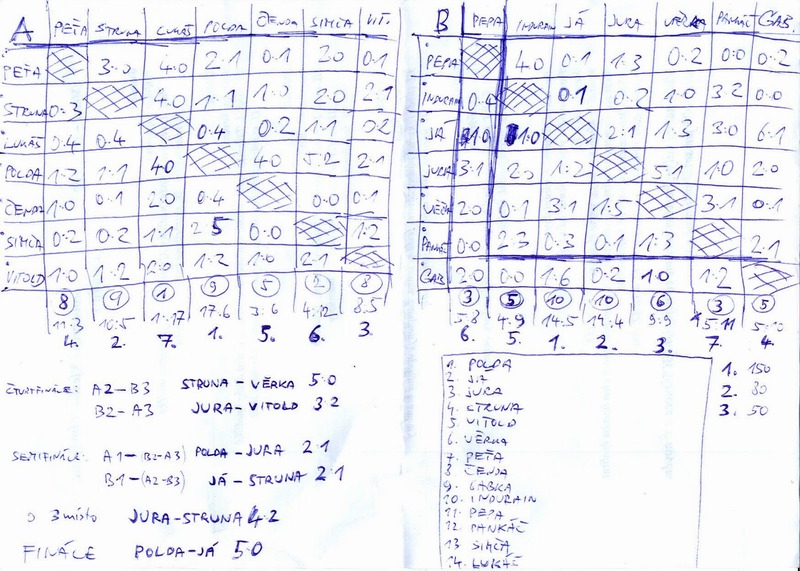 A PEŤA STRUNA LUKÁŠ POLDA ČENDA SIMČA VIT.
PEŤA 3:0 4:0 2:1 0:1 2:0 0:1
STRUNA 0:3 4:0 1:1 1:0 2:0 2:1
LUKÁŠ 0:4 0:4 0:4 0:2 1:1 0:2
POLDA 1:2 1:1 4:0 4:0 5:2 2:1
ČENDA 1:0 0:1 2:0 0:4 0:0 0:1
SIMČA 0:2 0:2 1:1 2:5 0:0 1:2
VITOLD 1:0 1:2 2:0 1:2 1:0 2:1
8 9 1 9 5 2 8
11:3 10:5 1:17 17:6 3:6 4:12 8:5
4. 2. 7. 1. 5. 6. 3.
B PEPA INDURAIN JÁ JURA VĚRKA PANKÁČ GAB.
PEPA 4:0 0:1 1:3 0:2 0:0 0:2
INDURAIN 0:4 0:1 0:2 1:0 3:2 0:0
JÁ 1:0 1:0 2:1 1:3 3:0 6:1
JURA 3:1 2:0 1:2 5:1 1:0 2:0
VĚRKA 2:0 0:1 3:1 1:5 3:1 0:1
PANKÁČ 0:0 2:3 0:3 0:1 1:3 2:1
GAB 2:0 0:0 1:6 0:2 1:0 1:2
3 5 10 10 6 3 5
5:8 4:9 14:5 14:4 9:9 5:11 5:10
6. 5. 1. 2. 3. 7. 4.
ČTVRTFINÁLE: A2-B3 STRUNA-VĚRKA 5:0
B2-A3 JURA-VITOLD 3:2
SEMIFINÁLE: A1-(B2-A3) POLDA-JURA 2:1
B1-(A2-B3) JÁ-STRUNA 2:1
O 3 místo JURA-STRUNA 4:2
FINÁLE POLDA-JÁ 5:0
1. POLDA
2. JÁ
3. JURA
4. STRUNA
5. VITOLD
6. VĚRKA
7. PEŤA
8. ČENDA
9. GABKA
10. INDURAIN
11. PEPA
12. PANKÁČ
13. SIMČA
14. LUKÁŠ
1. 150
2. 80
3. 50